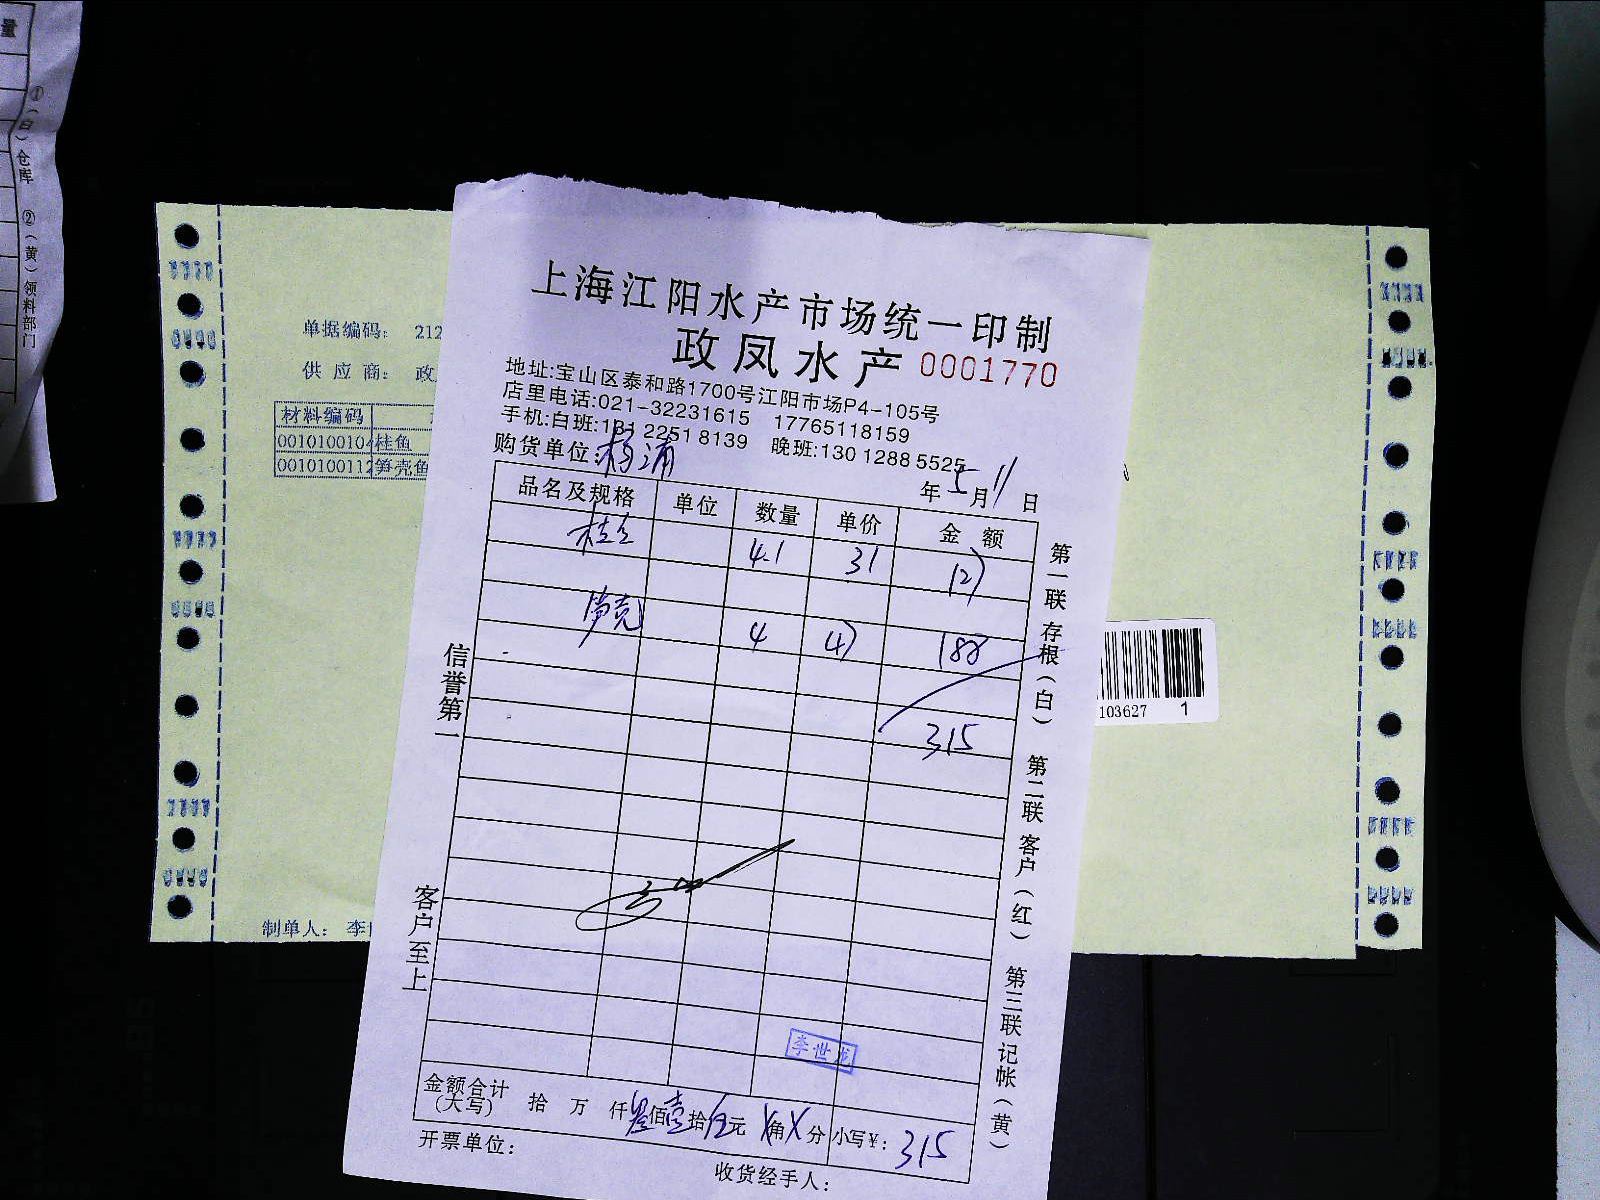 量
①（白）仓库 ②（黄）领料部门
单据编码： 212
供 应 商： 政
材料编码
0010100104 桂鱼
0010100112 笋壳鱼
制单人： 李
103627 1
上海江阳水产市场统一印制
政凤水产 0001770
地址:宝山区泰和路1700号江阳市场P4-105号
店里电话:021-32231615 17765118159
手机:白班:131 2251 8139 晚班:130 1288 5525
购货单位:杨浦
年5月11日
品名及规格 单位 数量 单价 金 额
桂鱼 4.1 31 127
笋壳 4 47 188
315
信誉第一
客户至上
第一联 存根（白） 第二联 客户（红） 第三联 记帐（黄）
李世龙
金额合计(大写) 拾 万 仟叁佰壹拾伍元X角X分 小写¥: 315
开票单位:
收货经手人: